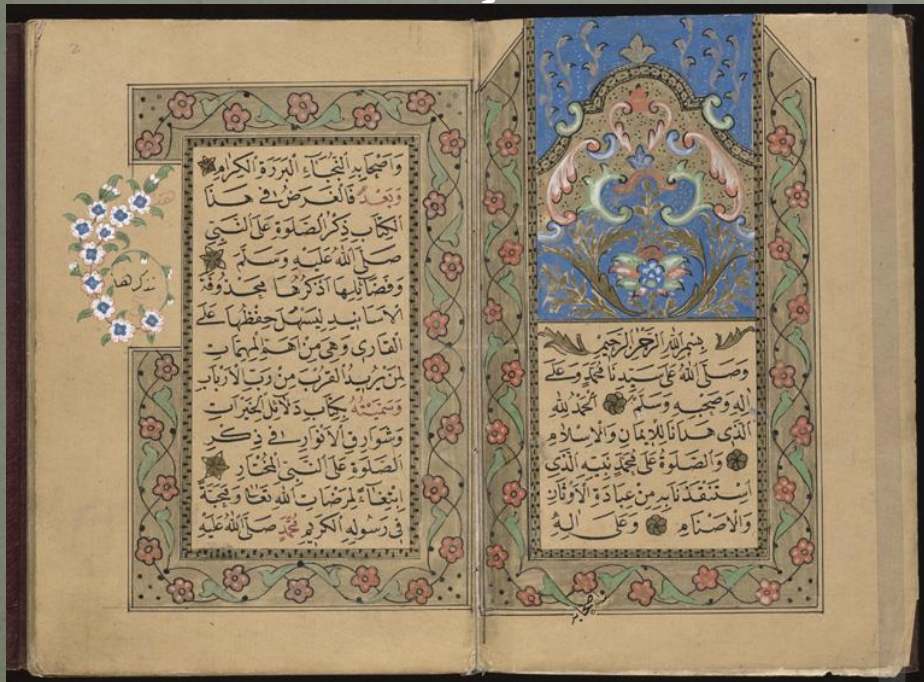 بِسْمِ اللهِ الرَّحْمٰنِ الرَّحِيمِ
وَصَلَّى اللهُ عَلَى سَيِّدِنَا مُحَمَّدٍ وَعَلَى
اٰلِهِ وَصَحْبِهِ وَسَلَّمَ اَلْحَمْدُ لِلّٰهِ
الَّذِي هَدَانَا لِلْإِيمَانِ وَالْاِسْلَامِ
وَالصَّلٰوةُ عَلَى مُحَمَّدٍ نَبِيِّهِ الَّذِي
اسْتَنْقَذَنَا بِهِ مِنْ عِبَادَةِ الْاَوْثَانِ
وَالْاَصْنَامِ وَعَلَى اٰلِهِ
واصحابه
وَاَصْحَابِهِ النُّجَبَاءِ الْبَرَرَةِ الْكِرَامِ
وَبَعْدُ فَالْغَرَضُ فِي هٰذَا
الْكِتَابِ ذِكْرُ الصَّلٰوةِ عَلَى النَّبِيِّ
صَلَّى اللهُ عَلَيْهِ وَسَلَّمَ
وَفَضَائِلِهَا اَذْكُرُهَا مَحْذُوفَةَ
الْاَسَانِيدِ لِيَسْهُلَ حِفْظُهَا عَلَى
الْقَارِي وَهِيَ مِنْ اَهَمِّ الْمُهِمَّاتِ
لِمَنْ يُرِيدُ الْقُرْبَ مِنْ رَبِّ الْاَرْبَابِ
وَسَمَّيْتُهُ بِكِتَابِ دَلَائِلِ الْخَيْرَاتِ
وَشَوَارِقِ الْاَنْوَارِ فِي ذِكْرِ
الصَّلٰوةِ عَلَى النَّبِيِّ الْمُخْتَارِ
اِبْتِغَاءً لِمَرْضَاتِ اللهِ تَعَالَى وَمَحَبَّةً
فِي رَسُولِهِ الْكَرِيمِ مُحَمَّدٍ صَلَّى اللهُ عَلَيْهِ
2